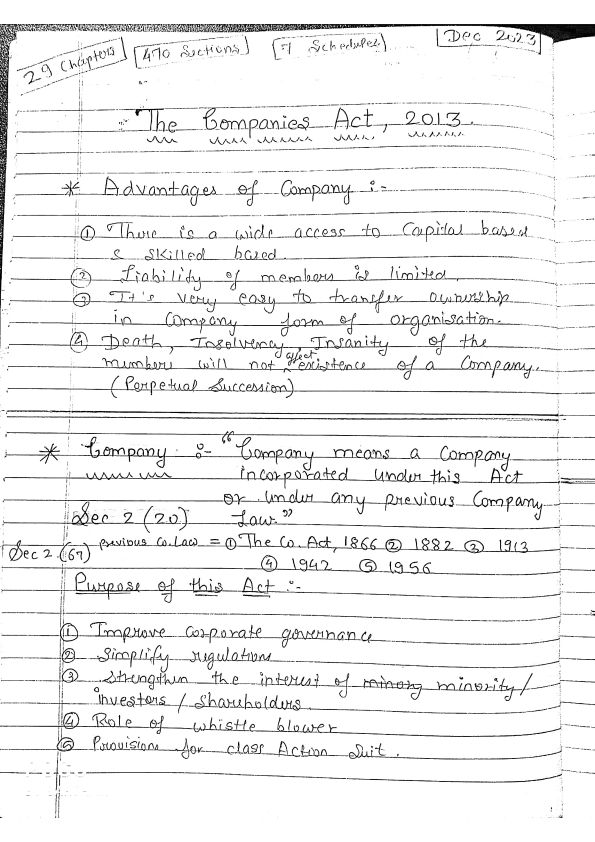 29 Chapters 470 Sections 7 Schedules Dec 2023
The Companies Act, 2013.
* Advantages of Company :-
① There is a wide access to Capital based
& skilled based.
② Liability of members is limited.
③ It's very easy to transfer ownership
in Company form of organisation.
④ Death, Insolvency, Insanity of the
members will not affect existence of a Company.
(Perpetual Succession)
* Company :- "Company means a Company
incorporated under this Act
or under any previous Company
Sec 2 (20) Law."
Sec 2 (67) previous Co. Law = ① The Co. Act, 1866 ② 1882 ③ 1913
④ 1942 ⑤ 1956
Purpose of this Act :-
① Improve corporate governance
② Simplify regulations
③ Strengthen the interest of minority/
investors / Shareholders.
④ Role of whistle blower
⑤ Provisions for class Action Suit.